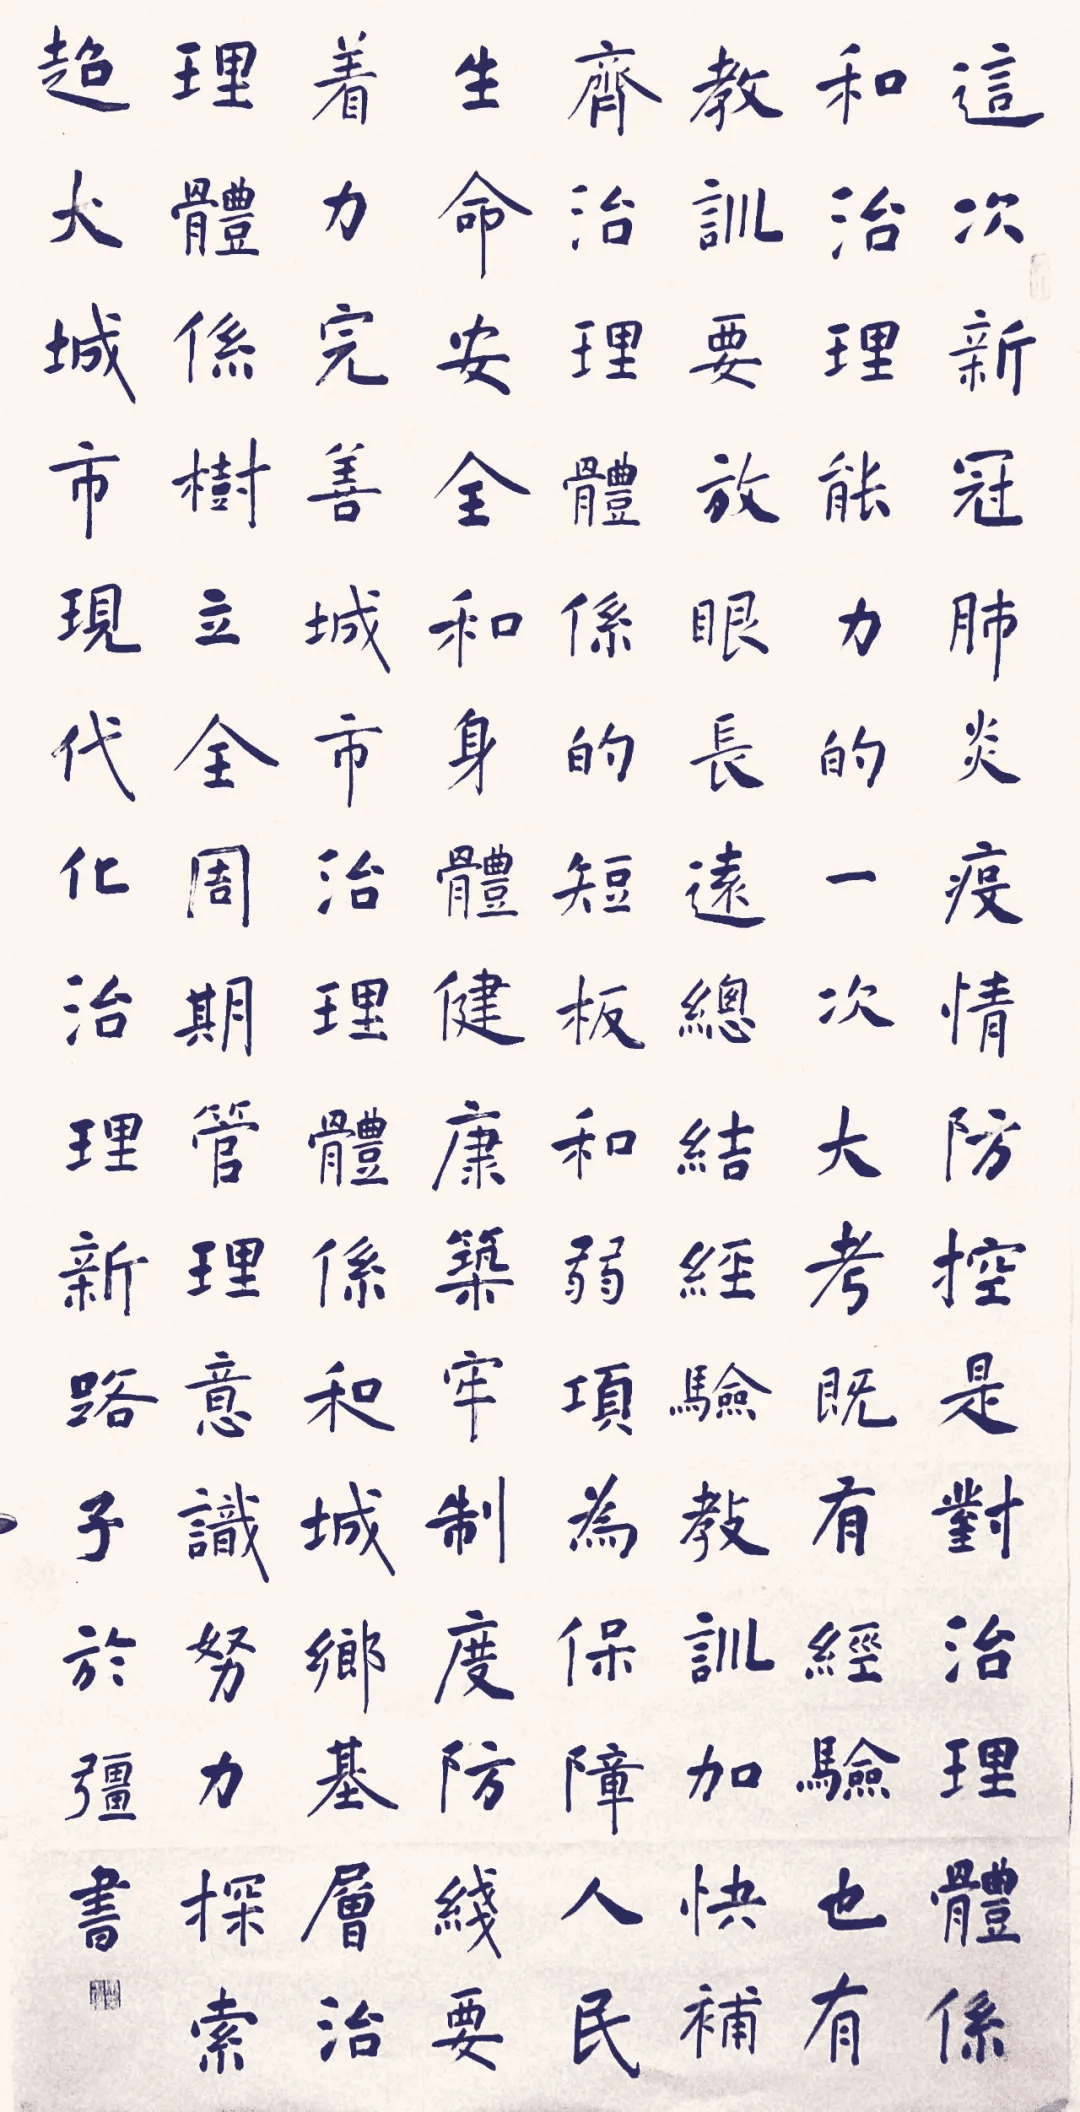 這次新冠肺炎疫情防控是對治理體係
和治理能力的一次大考既有經驗也有
教訓要放眼長遠總結經驗教訓加快補
齊治理體係的短板和弱項為保障人民
生命安全和身體健康築牢制度防綫要
着力完善城市治理體係和城鄉基層治
理體係樹立全周期管理意識努力探索
超大城市現代化治理新路子於彊書